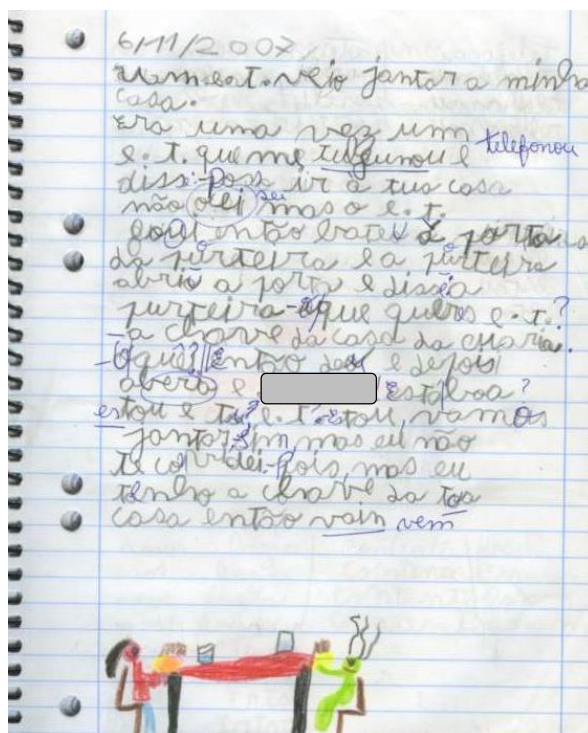 6/11/2007
um e.t. vejo jantar a minha
casa.
Era uma vez um
e.t. que me tulfunou e telefonou
disse-posso ir à tua casa
não olei sei mas o e.t.
então bateu à porta
da purteira e a purteira
abriu a porta e disse a
purteira - o que queres e.t.?
-a chave da casa da
-O quê? Entro e depois
abero e Está boa?
estou e tu? e.t. estou, vamos
jantar-sim, mas eu não
te convidei-pois, mas eu
tenho a chave da toa
casa então vain vem